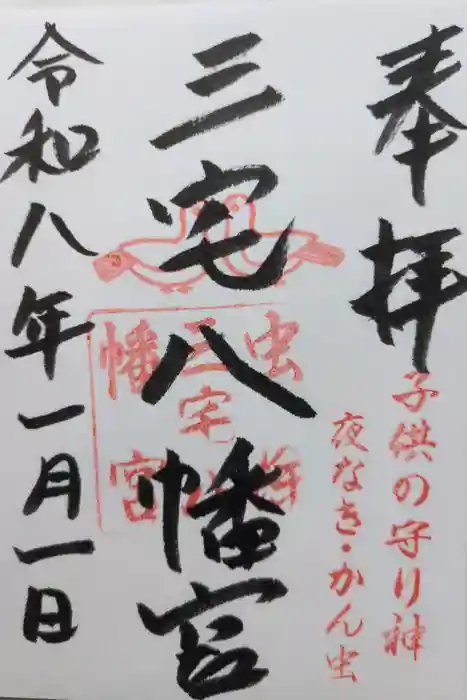 奉拝
子供の守り神
夜なき・かん虫
三宅八幡宮
虫
三宅八
幡宮
令和八年一月一日